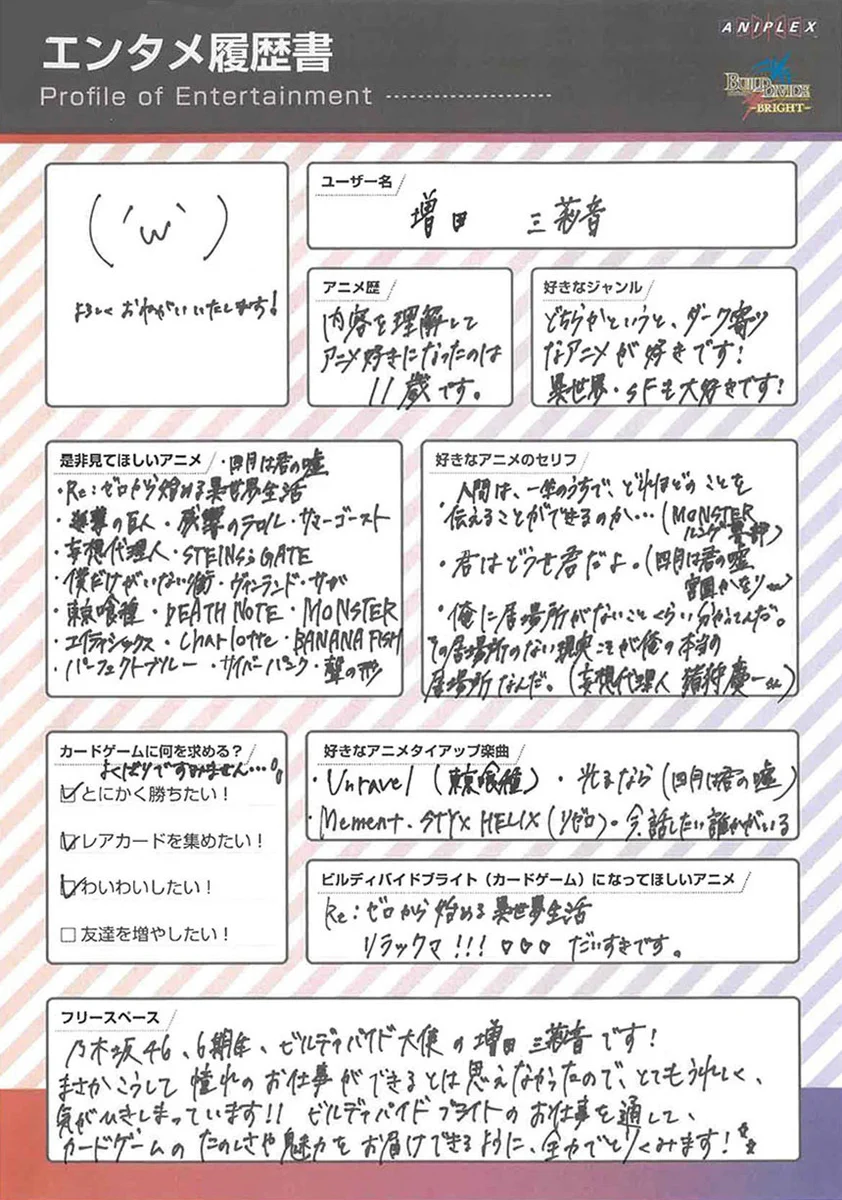 ANIPLEX
エンタメ履歴書
Profile of Entertainment
BUILD DIVIDE
-BRIGHT-
(´ω`)
よろしくおねがいいたします!
ユーザー名
増田 三莉音
アニメ歴
内容を理解して
アニメ好きになったのは
11歳です。
好きなジャンル
どちらかというと、ダーク寄り
なアニメが好きです!
異世界・SFも大好きです!
是非見てほしいアニメ
・四月は君の嘘
・Re:ゼロから始める異世界生活
・進撃の巨人・残響のテロル・サマーゴースト
・妄想代理人・STEINS;GATE
・僕だけがいない街・ヴィンランド・サガ
・東京喰種・DEATH NOTE・MONSTER
・エイティシックス・Charlotte・BANANA FISH
・パーフェクトブルー・サイバーパンク・聲の形
好きなアニメのセリフ
・人間は、一生のうちで、どれほどのことを
伝えることができるのか…(MONSTER
ルンゲ警部)
・君はどうせ君だよ。(四月は君の嘘
宮園かをり)
・俺に居場所がないことくらい分かってんだ。
その居場所のない現実こそが俺の本当の
居場所なんだ。(妄想代理人 猪狩慶一さん)
カードゲームに何を求める?
よくばりですみません…。
☑とにかく勝ちたい!
☑レアカードを集めたい!
☑わいわいしたい!
□友達を増やしたい!
好きなアニメタイアップ楽曲
・Unravel(東京喰種)・光るなら(四月は君の嘘)
・Mement・STYX HELIX(リゼロ)。今、話したい誰かがいる
ビルディバイドブライト(カードゲーム)になってほしいアニメ
Re:ゼロから始める異世界生活
リラックマ!!!♡♡♡ だいすきです。
フリースペース
乃木坂46、6期生、ビルディバイド大使の増田三莉音です!
まさかこうして憧れのお仕事ができるとは思えなかったので、とてもうれしく、
気がひきしまっています!! ビルディバイドブライトのお仕事を通して、
カードゲームのたのしさや魅力をお届けできるように、全力でとりくみます!